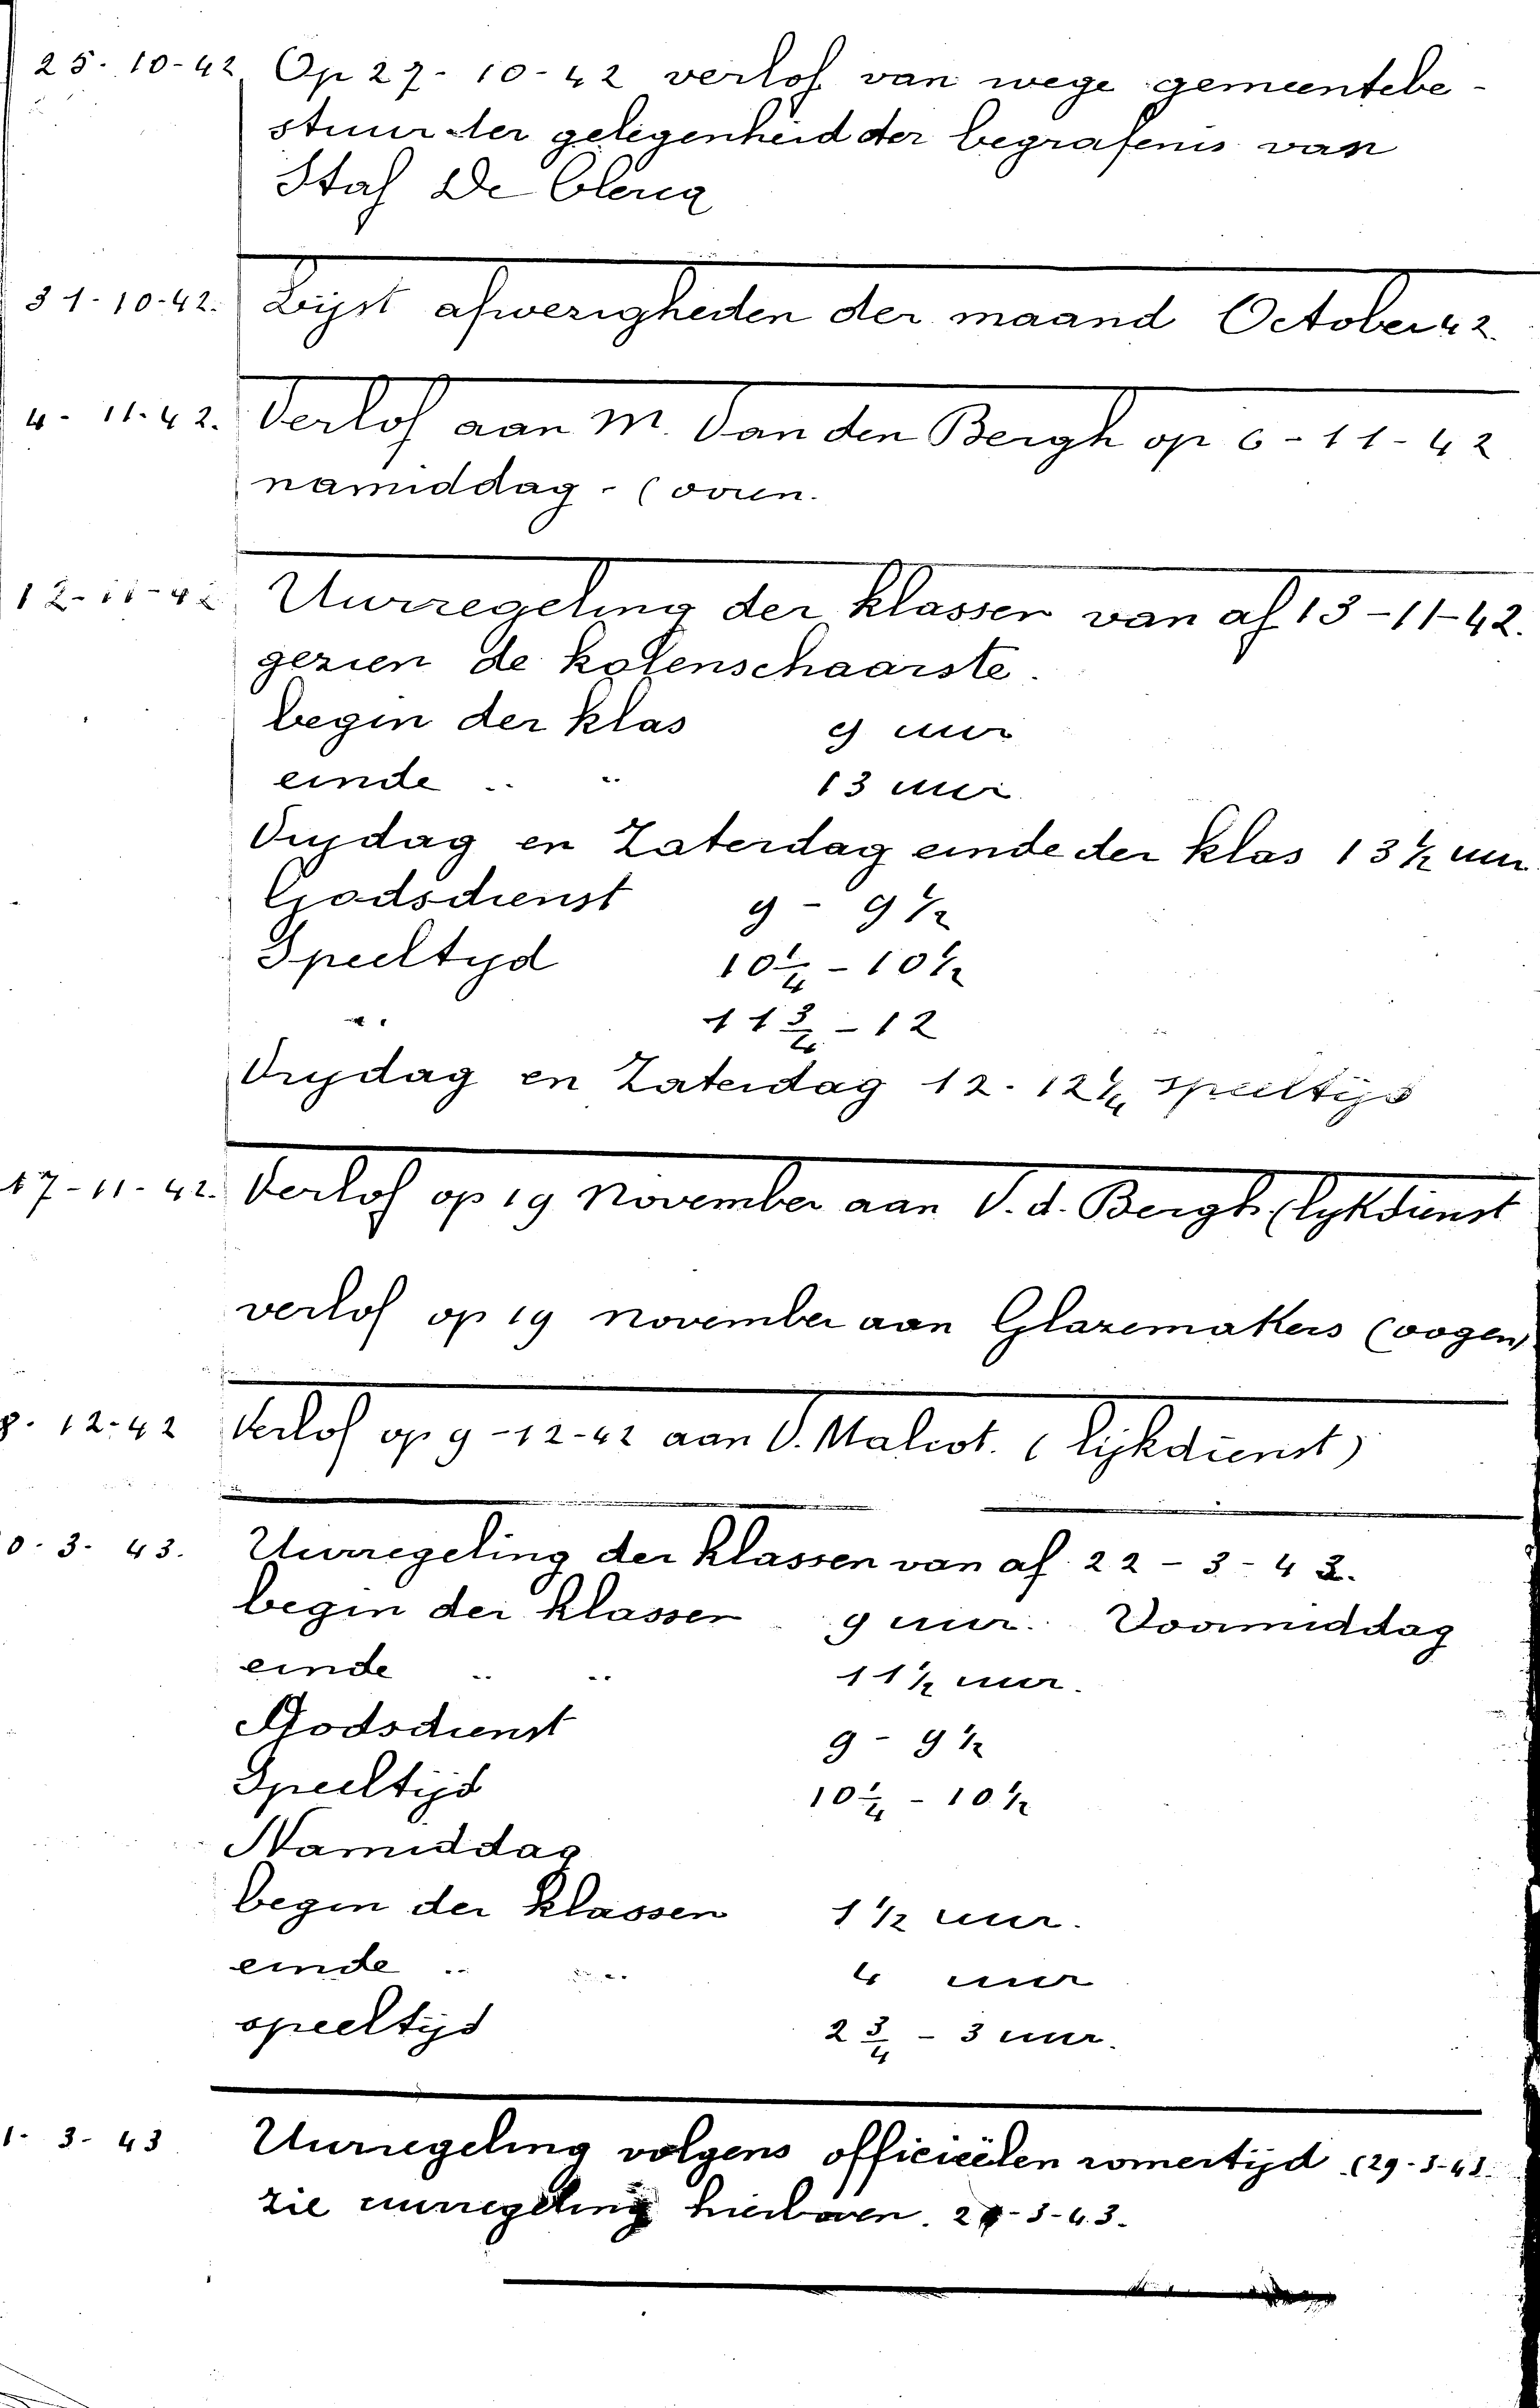 25-10-42 Op 27-10-42 verlof van wege gemeentebe-
stuur ter gelegenheid der begrafenis van
Staf De Clercq
31-10-42. Lijst afwezigheden der maand October 42
4-11-42. Verlof aan M. Van den Bergh op 6-11-42
namiddag - (ooren.
12-11-42 Uurregeling der klassen van af 13-11-42.
gezien de kolenschaarste.
begin der klas 9 uur
einde " " 13 uur
Vrijdag en Zaterdag einde der klas 13 1/2 uur
Godsdienst 9 - 9 1/2
Speeltijd 10 1/4 - 10 1/2
" " 11 3/4 - 12
Vrijdag en Zaterdag 12 - 12 1/4 speeltijd
17-11-42. Verlof op 19 November aan V. d. Bergh (lykdienst
verlof op 19 november aan Glazemakers (oogen)
8-12-42 Verlof op 9-12-42 aan V. (lijkdienst)
0-3-43. Uurregeling der klassen van af 22-3-43.
begin der klassen 9 uur. Voormiddag
einde " " 11 1/2 uur.
Godsdienst 9 - 9 1/2
Speeltijd 10 1/4 - 10 1/2
Namiddag
begin der klassen 1 1/2 uur.
einde " " 4 uur
speeltijd 2 3/4 - 3 uur.
1-3-43 Uurregeling volgens officieëlen zomertijd (29-3-43.
zie uurregeling hierboven. -3-43.